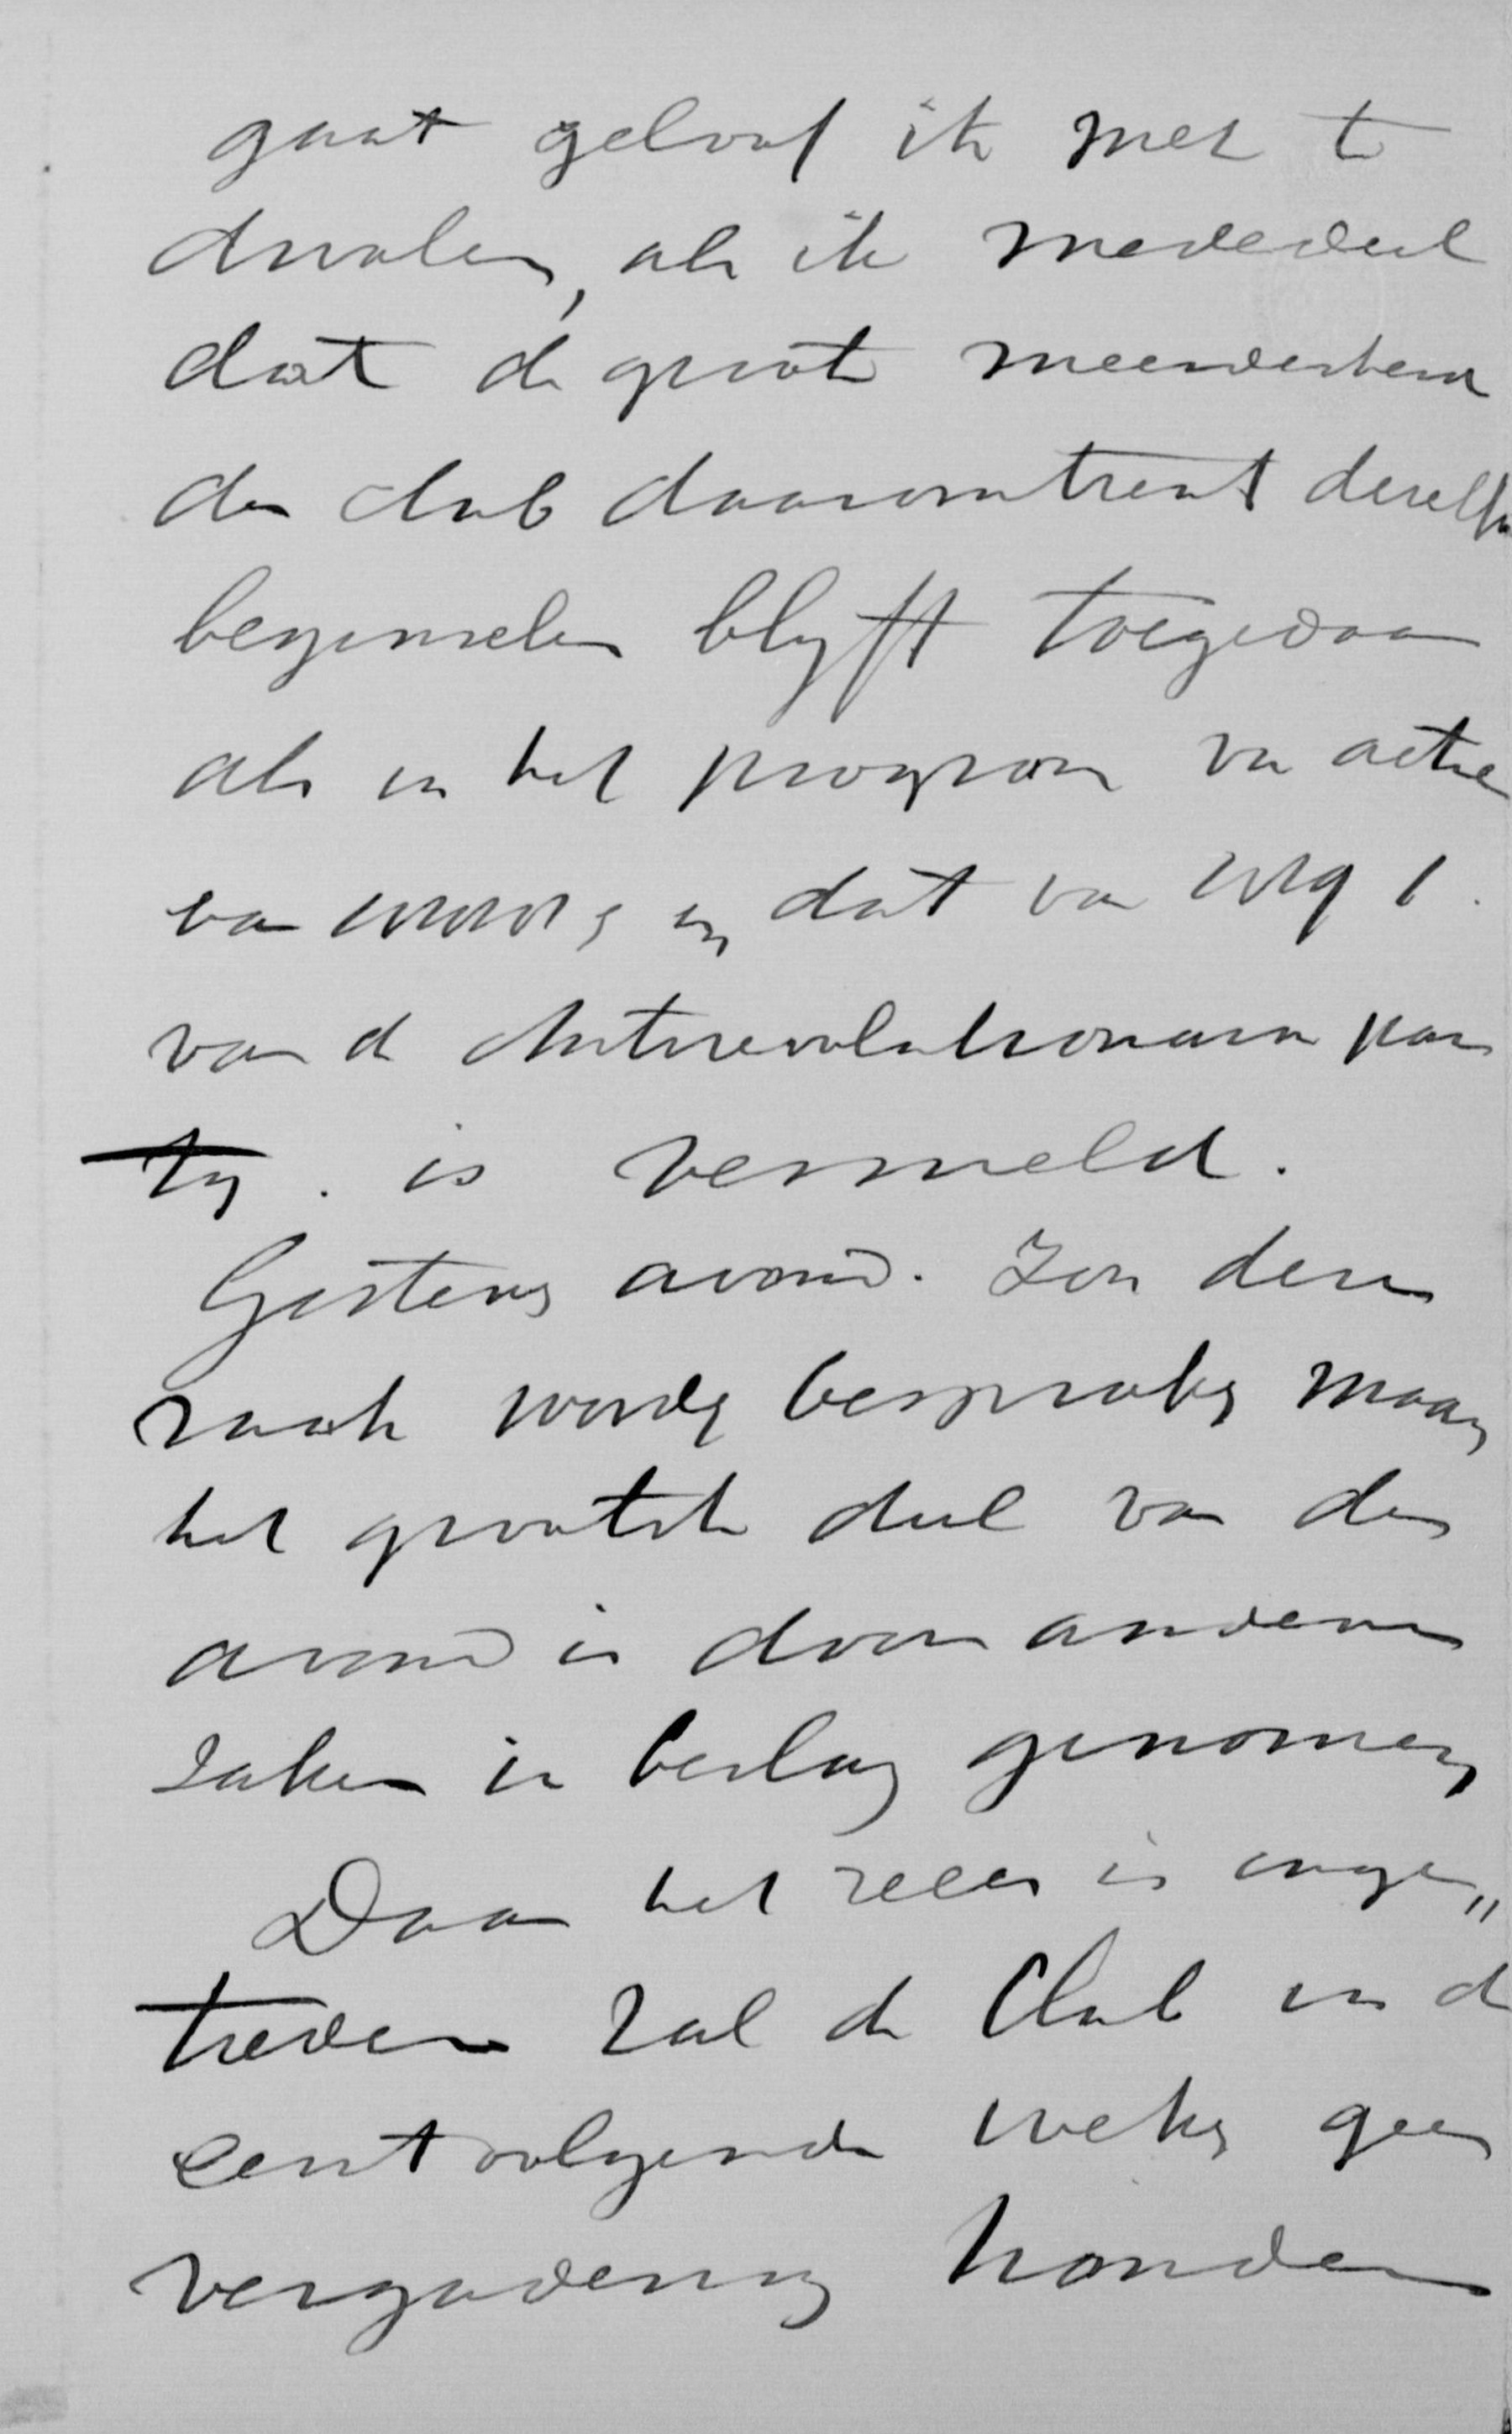 gaat geloof ik niet te
dwalen, als ik mededeel
dat de groote meerderheid
der club daaromtrent dezelfde
beginselen blyft toegedaan
als in het program van actie
van en dat van
van de Antirevolutionaire par
ty. is vermeld.
Gisteren avond. Zou deze
zaak worden besproken maar
het grootste deel van den
avond is door andere
zaken in beslag genomen
Daar het reces is inge„
treden zal de Club in de
eerstvolgende weken geen
vergadering houden